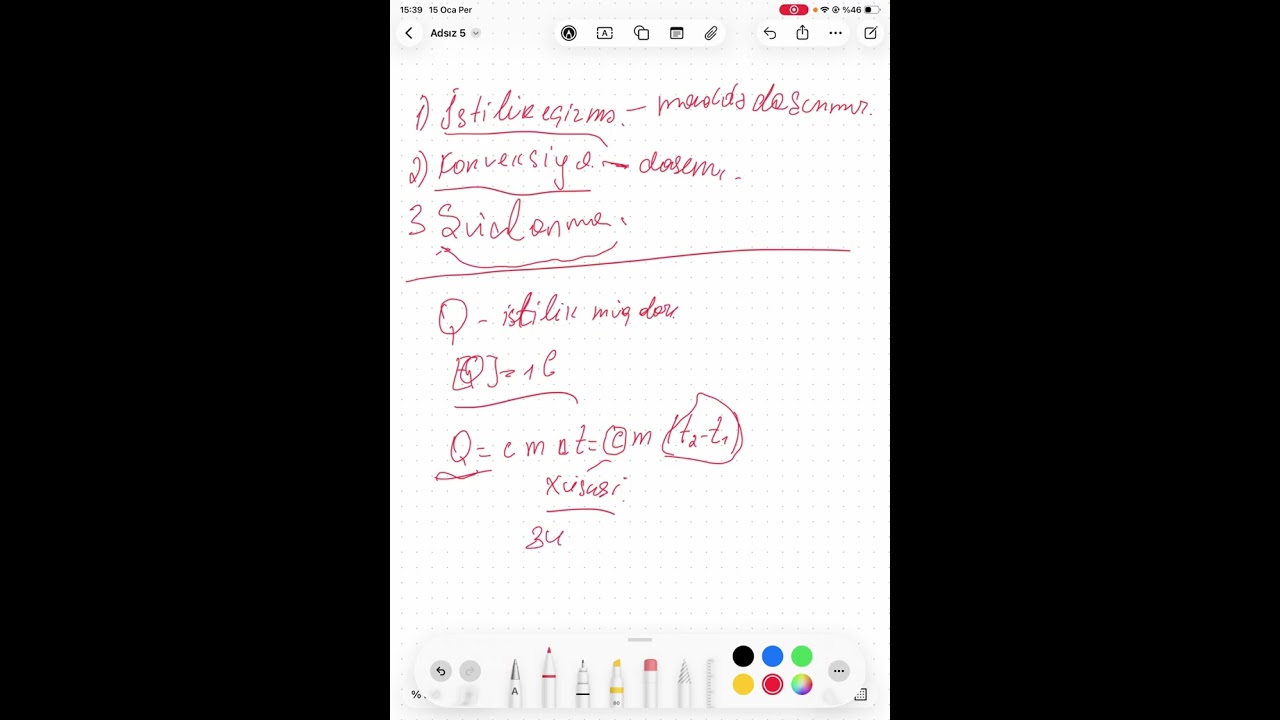 15:39 15 Oca Per %46
Adsız 5
1) İstilikeçirmə. – maddə daşınmır.
2) Konveksiya. – daşınır.
3 Şüalanma.
Q – istilik miqdarı
[Q] = 1 C
Q = c m Δt = c m (t₂–t₁)
Xüsusi
34
% .